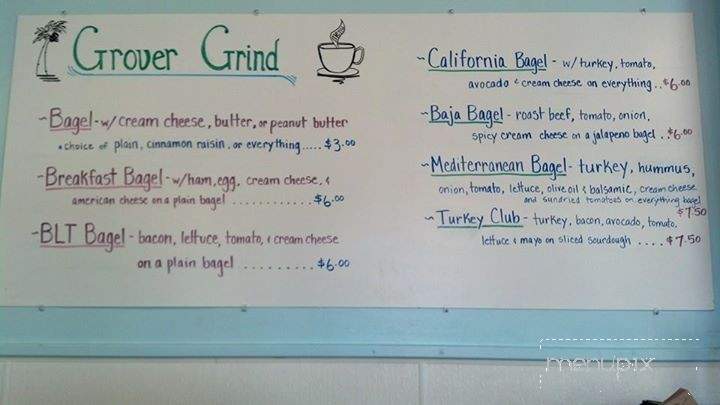 Grover Grind
~Bagel - w/ cream cheese, butter, or peanut butter
• choice of plain, cinnamon raisin, or everything ..... $3.00
~Breakfast Bagel - w/ ham, egg, cream cheese, &
american cheese on a plain bagel ............ $6.00
~BLT Bagel - bacon, lettuce, tomato, & cream cheese
on a plain bagel ......... $6.00
~California Bagel - w/ turkey, tomato,
avocado & cream cheese on everything .. $6.00
~Baja Bagel - roast beef, tomato, onion,
spicy cream cheese on a jalapeno bagel .. $6.00
~Mediterranean Bagel - turkey, hummus,
onion, tomato, lettuce, olive oil & balsamic, cream cheese
and sundried tomatoes on everything bagel
$7.50
~Turkey Club - turkey, bacon, avocado, tomato,
lettuce & mayo on sliced sourdough .... $7.50
menupix